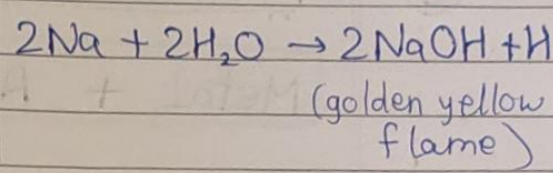 2Na + 2H₂O → 2NaOH + H
(golden yellow
flame)